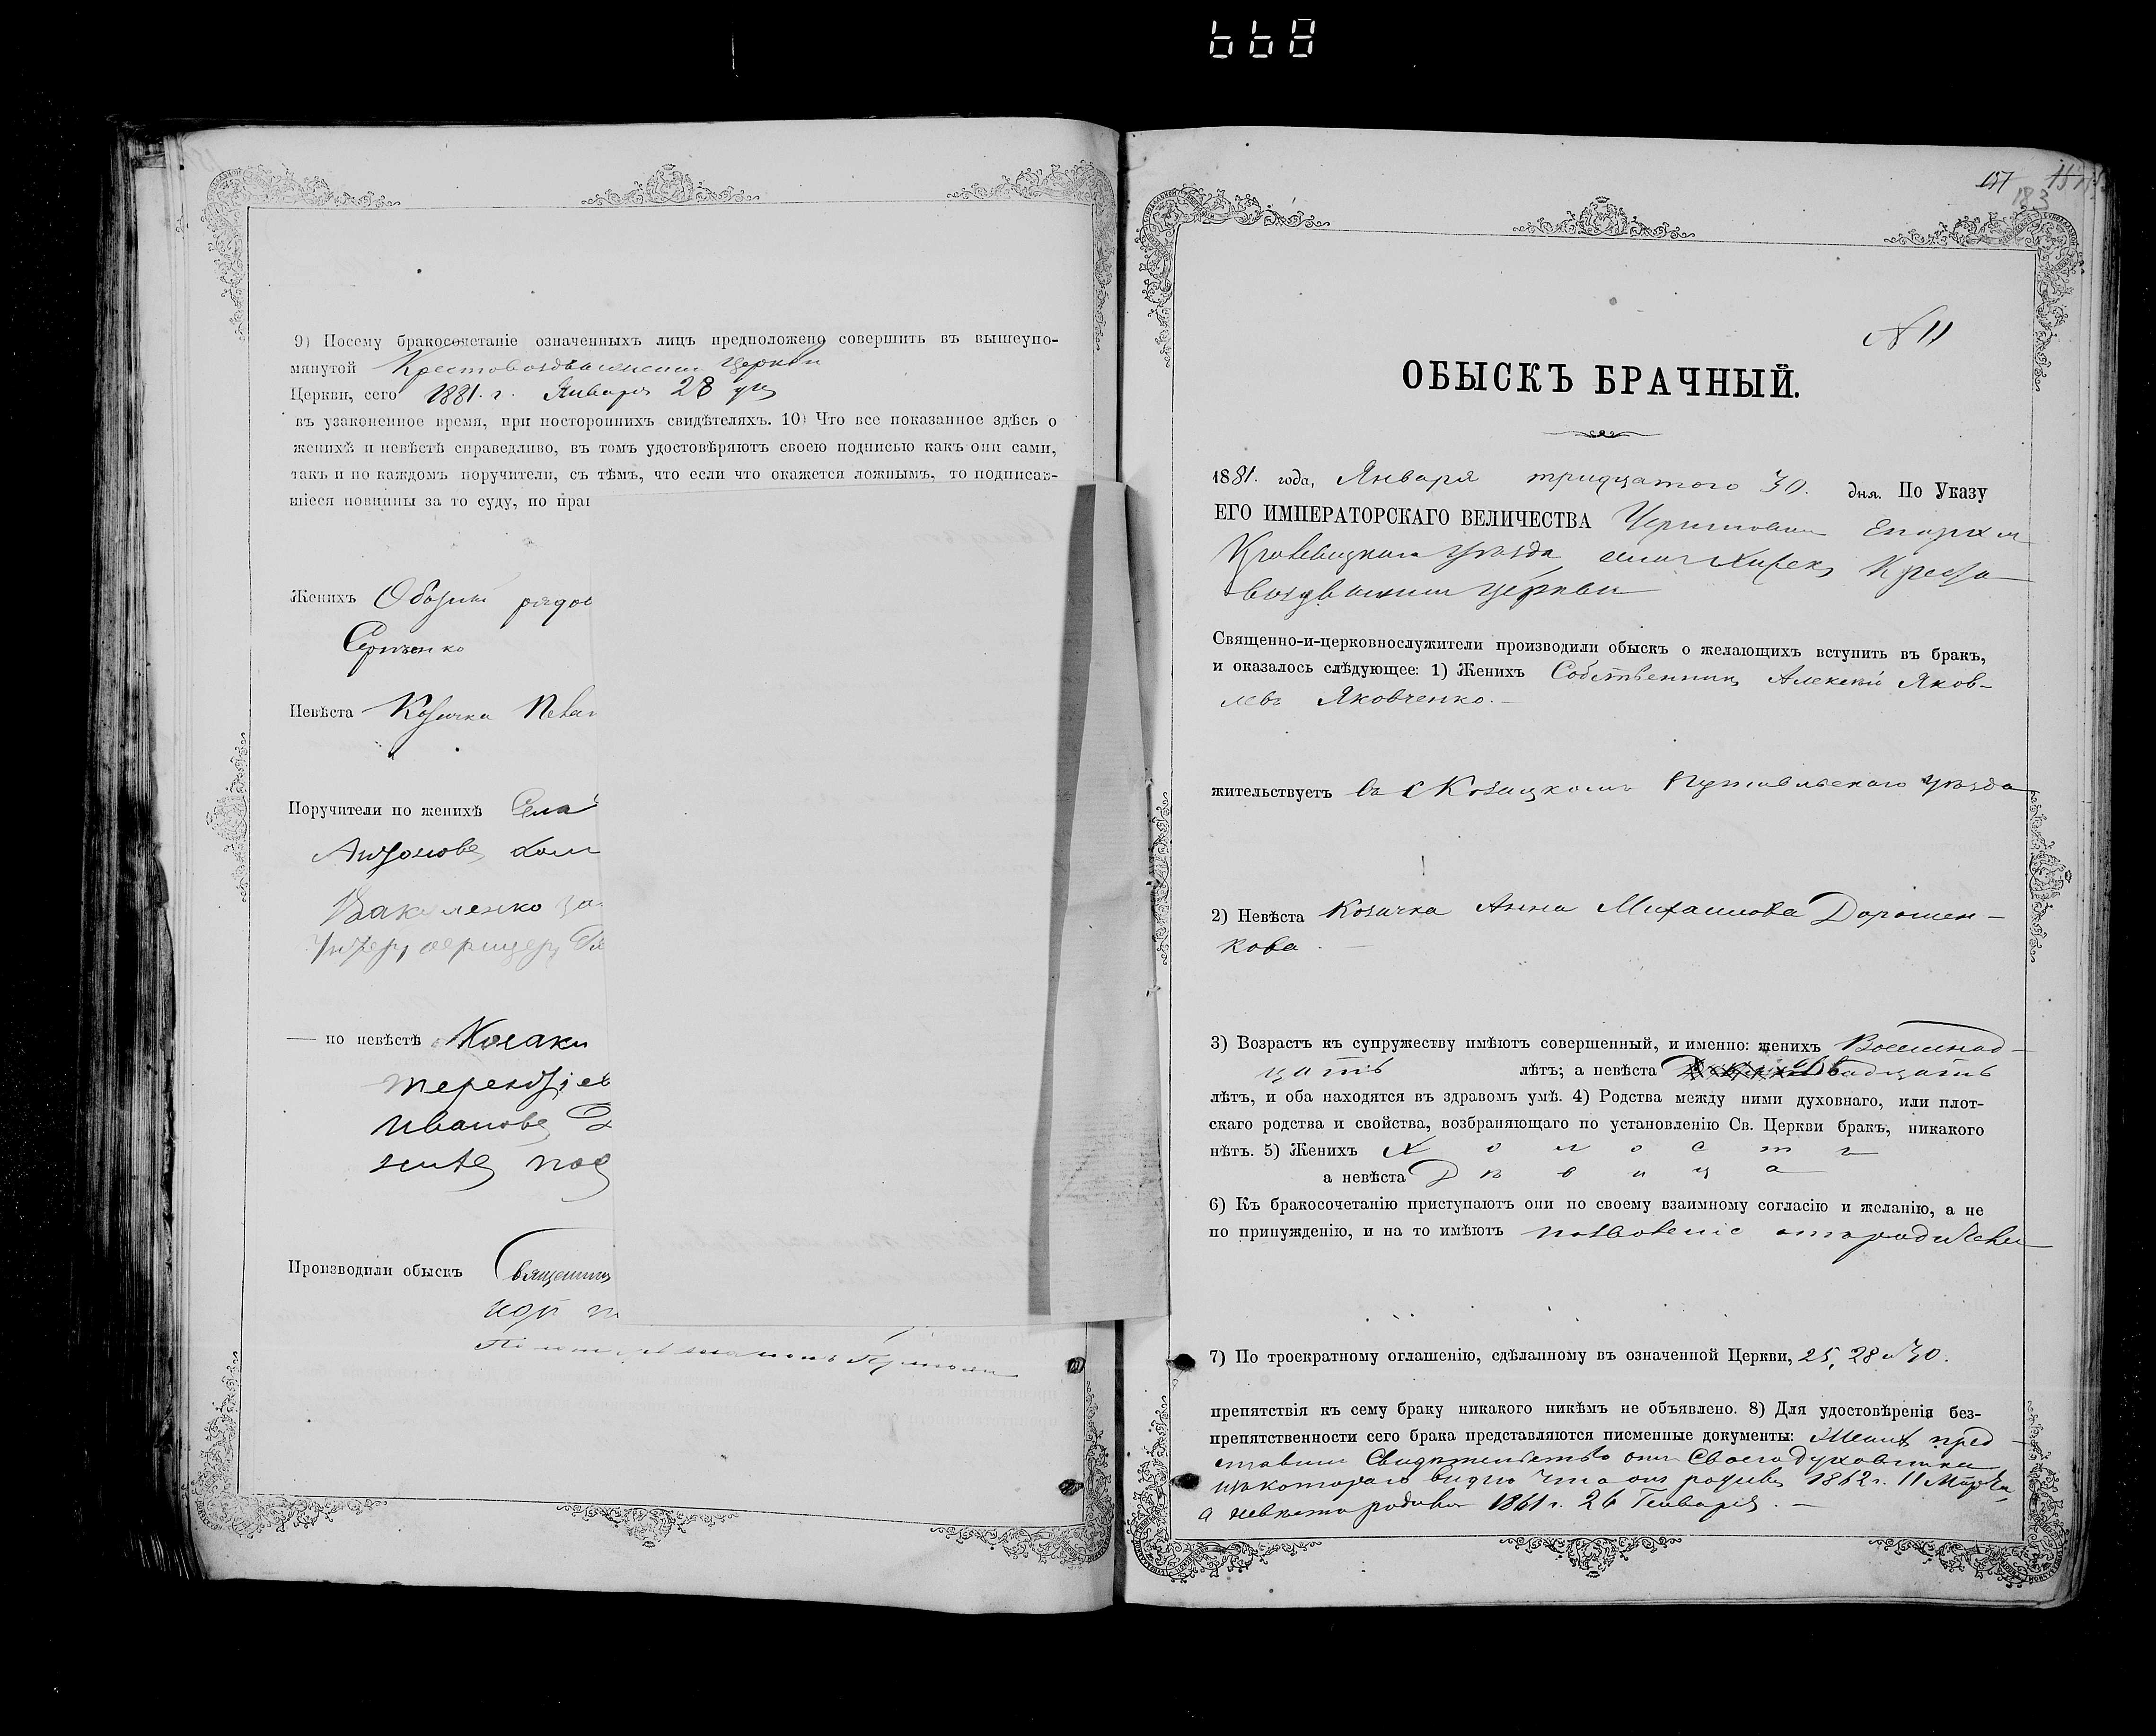 668
9) Посему бракосочетаніе означенныхъ лицъ предположено совершить въ вышеупо-
мянутой Крестовоздвиженской церкви
Церкви, сего 1881. г. Января 28 дня
въ узаконенное время, при постороннихъ свидѣтеляхъ. 10) Что все показанное здѣсь о
женихѣ и невѣстѣ справедливо, въ томъ удостовѣряютъ своею подписью какъ они сами,
такъ и по каждомъ поручители, съ тѣмъ, что если что окажется ложнымъ, то подписав-
шіеся повинны за то суду, по прав
Женихъ рядов
Сергѣенко
Невѣста Козачка
Поручители по женихѣ Села
Антонова
Вакуленко за
Унтеръ офицеръ
— по невѣстѣ Козаки
Терентіев
Иванов
Производили обыскъ Священник
157
183
N 11
ОБЫСКЪ БРАЧНЫЙ.
1881. года, Января тридцатого 30. дня. По Указу
ЕГО ИМПЕРАТОРСКАГО ВЕЛИЧЕСТВА Черниговской Епархіи
Кролевецкаго уѣзда села Кресто
воздвижен церкви
Священно-и-церковнослужители производили обыскъ о желающихъ вступить въ бракъ,
и оказалось слѣдующее: 1) Женихъ Собственникъ Алексѣй Яков-
левъ Яковченко. —
жительствуетъ въ с Козацкомъ Путивльскаго уѣзда
2) Невѣста Козачка Анна Михаилова Дорошен-
кова. —
3) Возрастъ къ супружеству имѣютъ совершенный, и именно: женихъ Восемнад-
цать лѣтъ; а невѣста Двадцать
лѣтъ, и оба находятся въ здравомъ умѣ. 4) Родства между ними духовнаго, или плот-
скаго родства и свойства, возбраняющаго по установленію Св. Церкви бракъ, никакого
нѣтъ. 5) Женихъ Х о л о с т ъ
а невѣста Д ѣ в и ц а
6) Къ бракосочетанію приступаютъ они по своему взаимному согласію и желанію, а не
по принужденію, и на то имѣютъ позволеніе отъ родителей
7) По троекратному оглашенію, сдѣланному въ означенной Церкви, 25, 28 и 30.
препятствія къ сему браку никакого никѣмъ не объявлено. 8) Для удостовѣренія без-
препятственности сего брака представляются писменные документы: Женихъ пред
ставилъ Свидѣтельство отъ Своего духовника
изъ котораго видно что онъ родился 1862 г. 11 Марта,
а невѣста родилась 1861 г. 26 Генваря. —